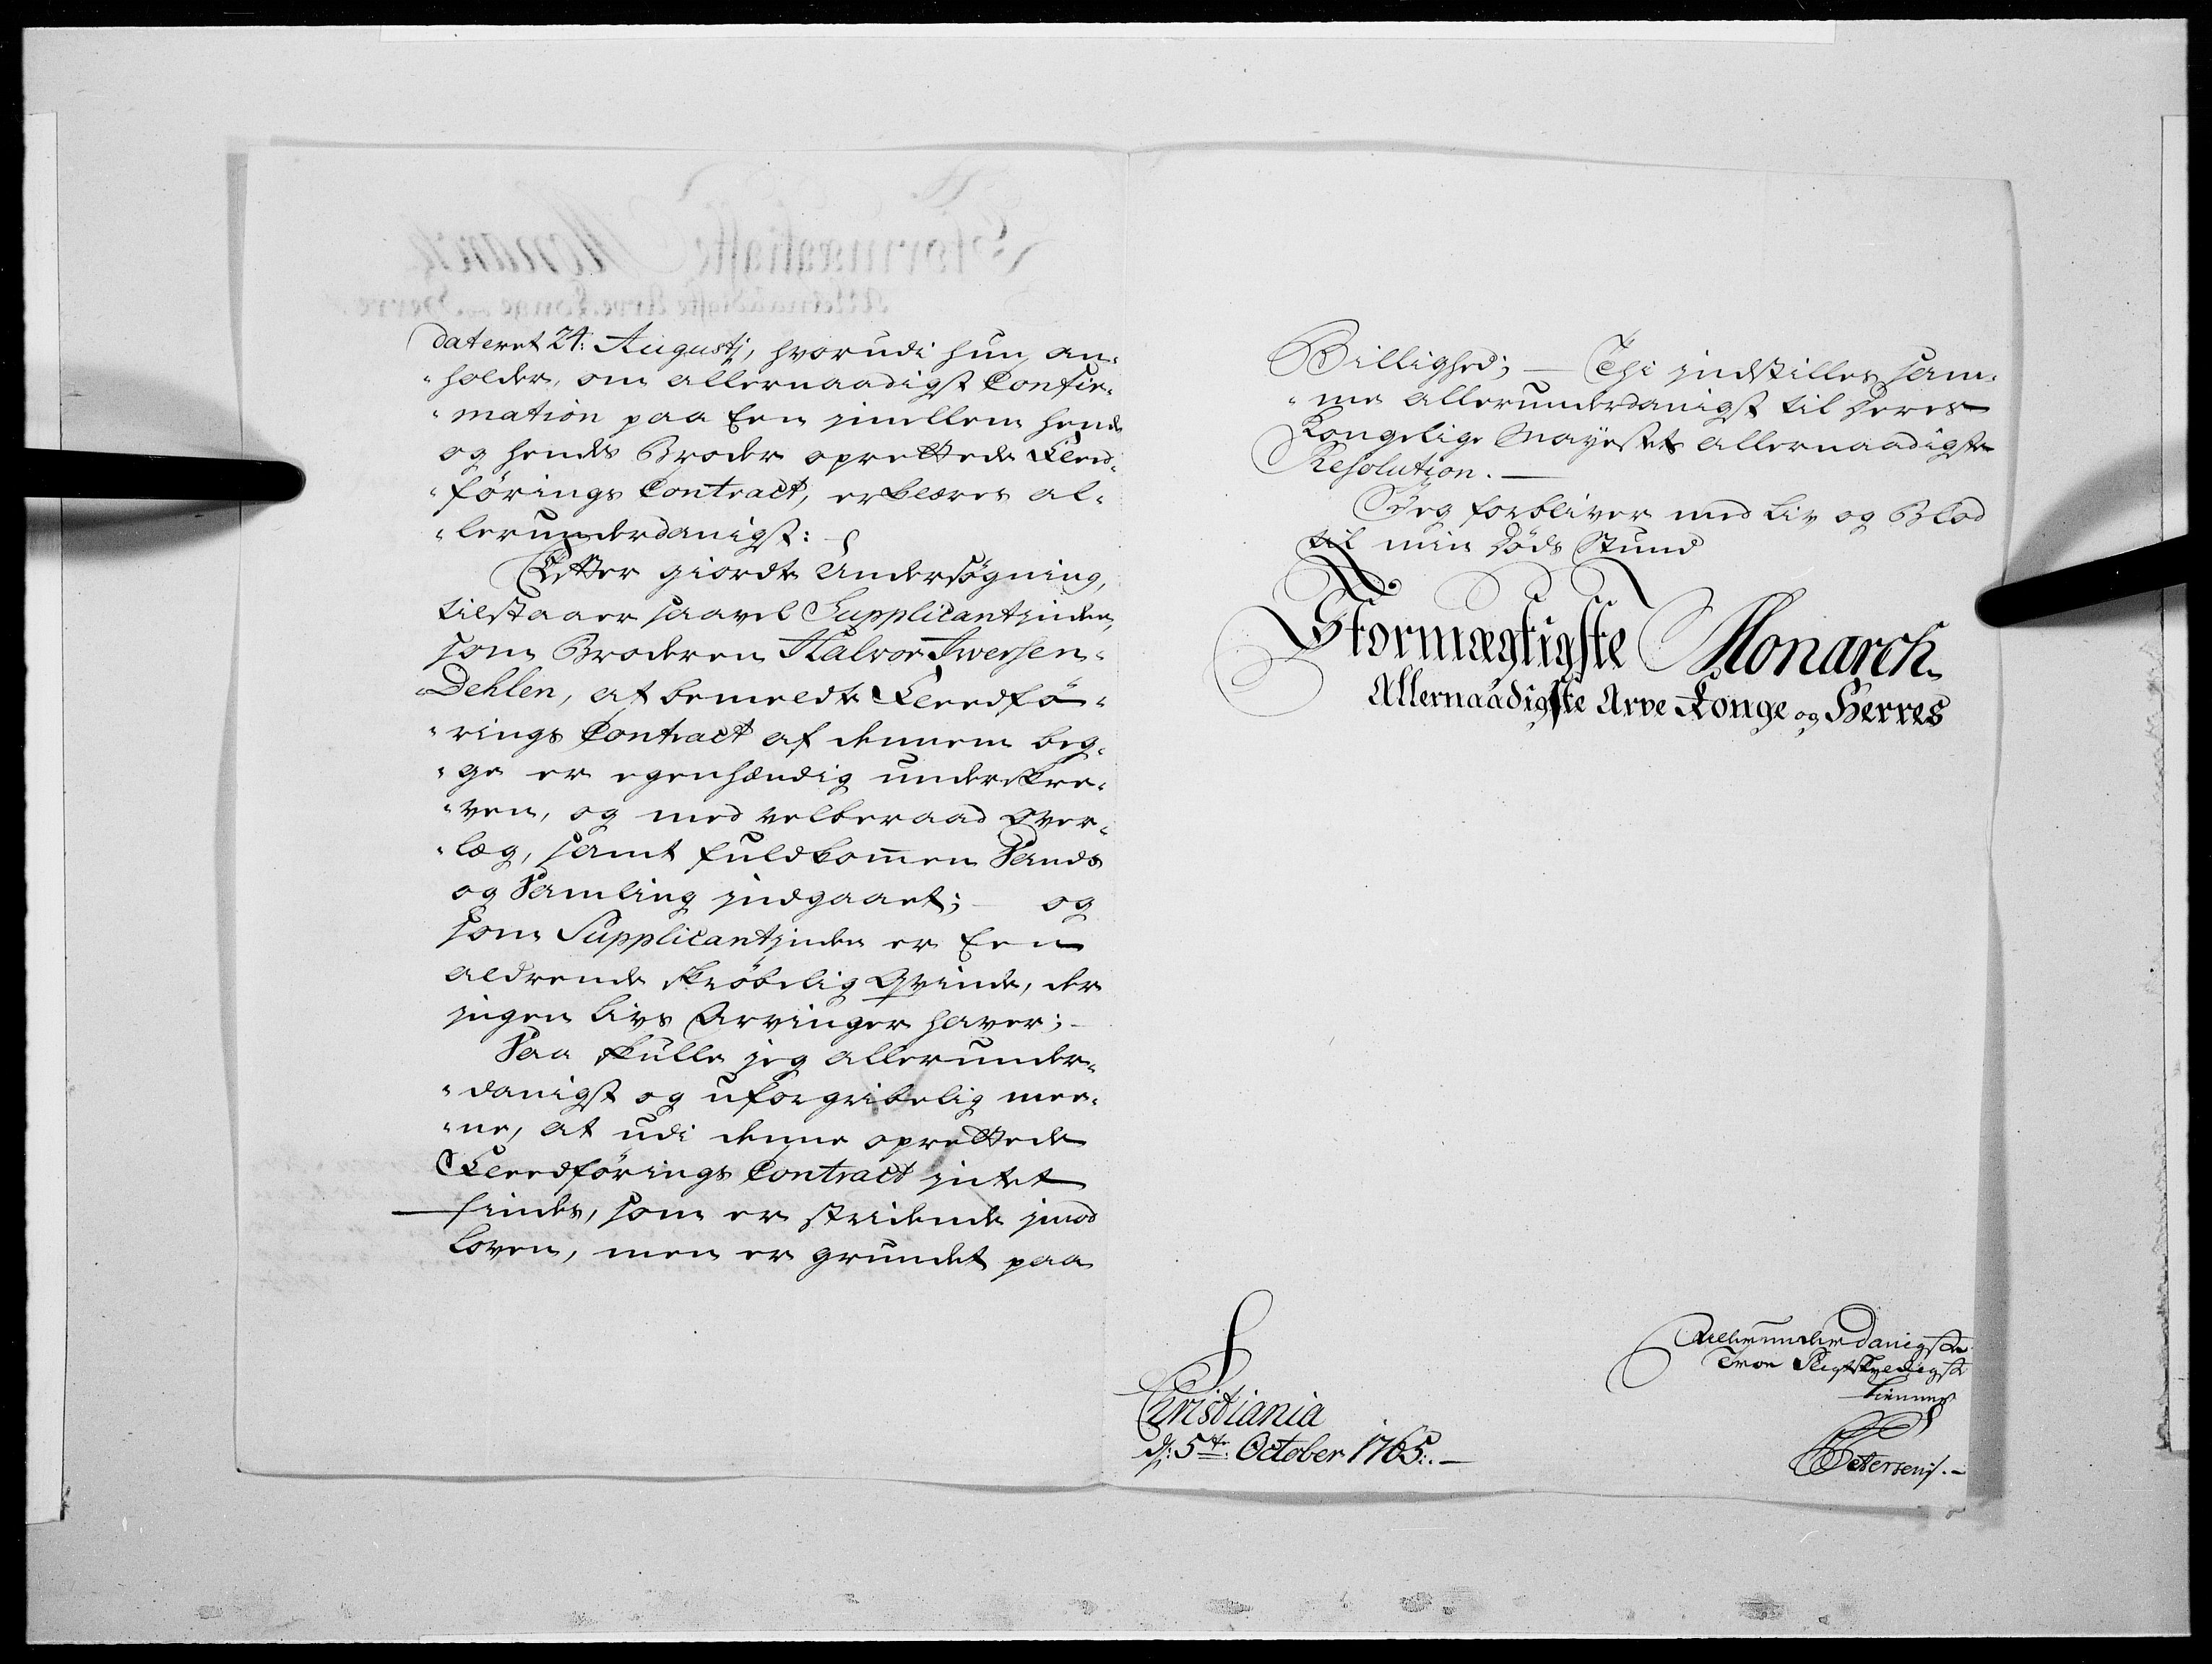 dateret 24: Augustj, hvorudi hun an-
-holder, om allernaadigst Confir-
-mation paa Een jmellem hende
og hendes Broder oprettede Fled-
-förings Contract, erklæres al-
-lerunderdanigst:
Efter giordte Undersögning,
tilstaaer saavel Supplicantjnden,
som Broderen Halvor Iwersen
Dehlen, at bemeldte Fleedfö-
-rings Contract af dennem beg-
-ge er egenhændig underskre-
-ven, og med velberaad Over-
-læg, samt fuldkommen Sands
og Samling jndgaaet; og
som Supplicantjnden er Een
aldrende skröbelig Qvinde, der
jngen Livs Arvinger haver;
Saa skulle jeg allerunder-
-danigst og uforgribelig mee-
-ne, at udi denne oprettede
Fleedförings Contract jntet
findes, som er stridende jmod
Loven, men er grundet paa
Billighed; — Thi jndstilles sam-
-me allerunderdanigst til Deres
Kongelige Mayestets allernaadigste
Resolution. —
Jeg forbliver med Liv og Blod
til min Döds Stund
Stormægtigste Monarch
Allernaadigste Arve Konge og Herres
Christiania
d: 5te October 1765. —
Allerunderdanigste
Troe Pligtskyldigste
tienner
Petersen